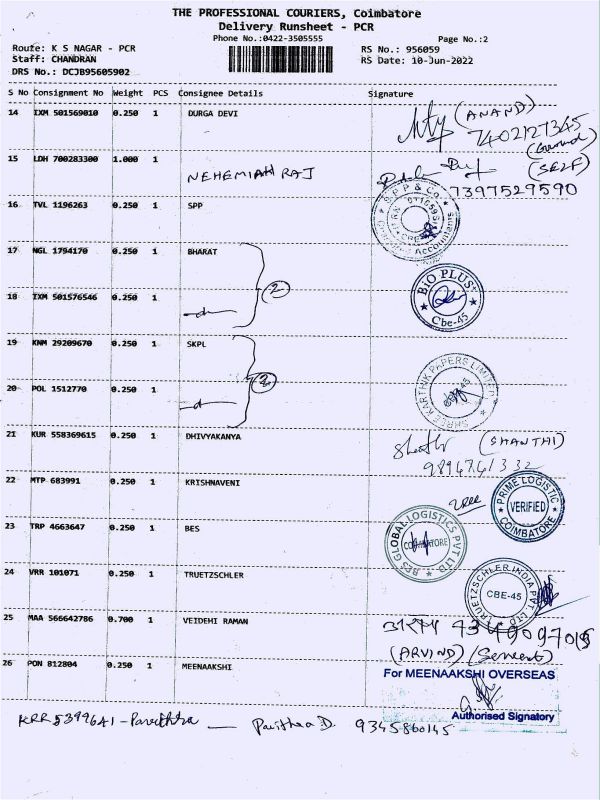 THE PROFESSIONAL COURIERS, Coimbatore
Delivery Runsheet - PCR
Phone No.:0422-3505555
Page No.:2
Route: K S NAGAR - PCR
RS No.: 956059
Staff: CHANDRAN
RS Date: 10-Jun-2022
DRS No.: DCJB95605902
S No Consignment No Weight PCS Consignee Details Signature
14 IXM 501569010 0.250 1 DURGA DEVI
(ANAND)
7402127345
15 LDH 700283300 1.000 1 NEHEMIAH RAJ
(SELF)
7397529590
16 TVL 1196263 0.250 1 SPP
SPP & Co.
Accountants
17 NGL 1794170 0.250 1 BHARAT
18 IXM 501576546 0.250 1 -d- (2)
BIO PLUS
Cbe-45
19 KNM 29209670 0.250 1 SKPL
20 POL 1512770 0.250 1 -d- (2)
SHREE KARTHIK PAPERS LIMITED
21 KUR 558369615 0.250 1 DHIVYAKANYA
(SHANTHI)
9894741332
22 MTP 683991 0.250 1 KRISHNAVENI
PRIME LOGISTIC
VERIFIED
COIMBATORE
23 TRP 4663647 0.250 1 BES
BES GLOBAL LOGISTICS PVT LTD
COIMBATORE
24 VRR 101071 0.250 1 TRUETZSCHLER
TRUETZSCHLER INDIA PVT. LTD
CBE-45
25 MAA 566642786 0.700 1 VEIDEHI RAMAN
(ARVIND)
26 PON 812804 0.250 1 MEENAAKSHI
For MEENAAKSHI OVERSEAS
Authorised Signatory
KRR 5399641 - Pavithra — Pavithra D. 9345860145